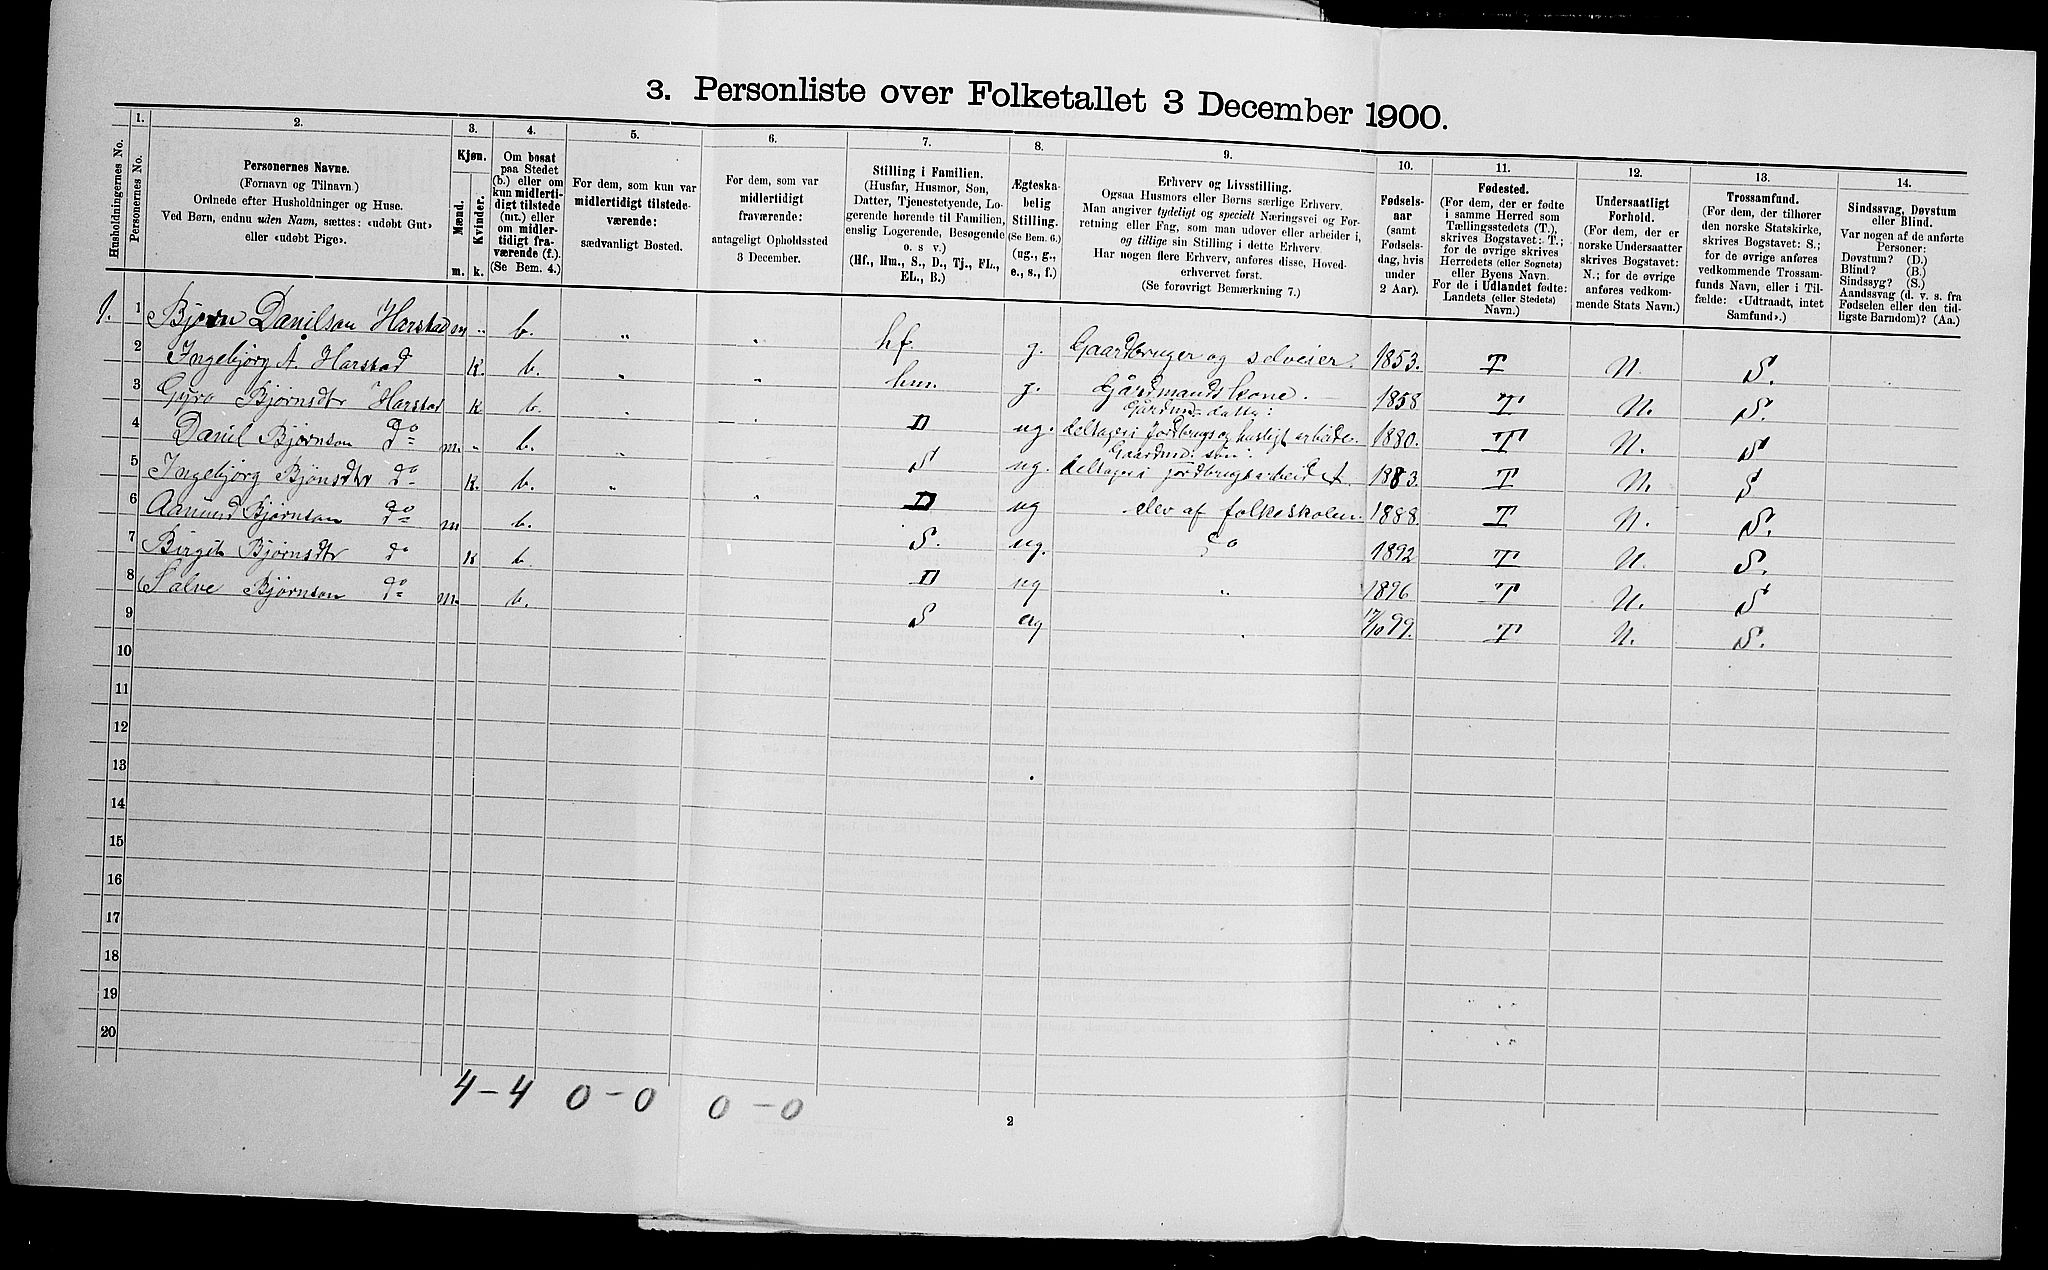 3. Personliste over Folketallet 3 December 1900.
Husholdningernes No.
1.
Personernes No.
2.
Personernes Navne.
(Fornavn og Tilnavn.)
Ordnede efter Husholdninger og Huse.
Ved Børn, endnu uden Navn, sættes: «udøbt Gut»
eller «udøbt Pige».
3.
Kjøn.
Mænd.
Kvinder.
m.
k.
4.
Om bosat
paa Stedet
(b.) eller om
kun midlerti-
digt tilstede
(mt.) eller
om midler-
tidigt fra-
værende (f.).
(Se Bem. 4.)
5.
For dem, som kun var
midlertidigt tilstede-
værende:
sædvanligt Bosted.
6.
For dem, som var
midlertidigt
fraværende:
antageligt Opholdssted
3 December.
7.
Stilling i Familien.
(Husfar, Husmor, Søn,
Datter, Tjenestetyende, Lo-
gerende hørende til Familien,
enslig Logerende, Besøgende
o. s v.)
(Hf., Hm., S., D., Tj., FL.,
EL., B.)
8.
Ægteska-
belig
Stilling.
(Se Bem. 6.)
(ug., g.,
e., s., f.)
9.
Erhverv og Livsstilling.
Ogsaa Husmors eller Børns særlige Erhverv.
Man angiver tydeligt og specielt Næringsvei og For-
retning eller Fag, som man udover eller arbeider i,
og tillige sin Stilling i dette Erhverv.
Har nogen flere Erhverv, anføres disse, Hoved-
erhvervet først.
(Se forøvrigt Bemærkning 7.)
10.
Fødsels-
aar
(samt
Fødsels-
dag, hvis
under
2 Aar).
11.
Fødested.
(For dem, der er fødte
i samme Herred som
Tællingsstedets (T.),
skrives Bogstavet: T.;
for de øvrige skrives
Herredets (eller Sognets)
eller Byens Navn.
For de i Udlandet fødte:
Landets (eller Stedets)
Navn.)
12.
Undersaatligt
Forhold.
(For dem, der er
norske Undersaatter
skrives Bogstavet:
N.; for de øvrige
anføres vedkom-
mende Stats Navn.)
13.
Trossamfund.
(For dem, der tilhører
den norske Statskirke,
skrives Bogstavet: S.;
for de øvrige anføres
vedkommende Trossam-
funds Navn, eller i Til-
fælde: «Udtraadt, intet
Samfund».)
14.
Sindssvag, Døvstum
eller Blind.
Var nogen af de anførte
Personer:
Døvstum? (D.)
Blind? (B.)
Sindssyg? (S.)
Aandssvag (d. v. s. fra
Fødselen eller den tid-
ligste Barndom)? (Aa.)
1. 1 Bjørn Danilson Harstad m " b. " " hf. g. Gaardbruger og selveier. 1853. T N. S.
2 Ingebjørg A. Harstad k. b. " " hm. g. Gårdmandskone. 1858 T N. S.
3 Gyro Bjørnsdtr Harstad k b. " " D ug. Gårdmds datter: deltager i Jordbrugs og husligt arbeide. 1880. T N. S
4 Daniel Bjørnson do m. " b. " S ug. Gaardmds søn: deltager i jordbrugsarbeidet. 1883. T N. S
5 Ingebjørg Bjønsdtr do k. b. " " D ug elev af folkeskolen. 1888. T N. S.
6 Aamund Bjørnson do m b. S. ug. do 1892 T N. S.
7 Birgit Bjørnsdtr do k b. D ug " 1896 T N. S
8 Salve Bjørnson do m. b. S ug " 17/10 99. T N. S.
9
10
11
12
13
14
15
16
17
18
19
20
4-4 0-0 0-0
2